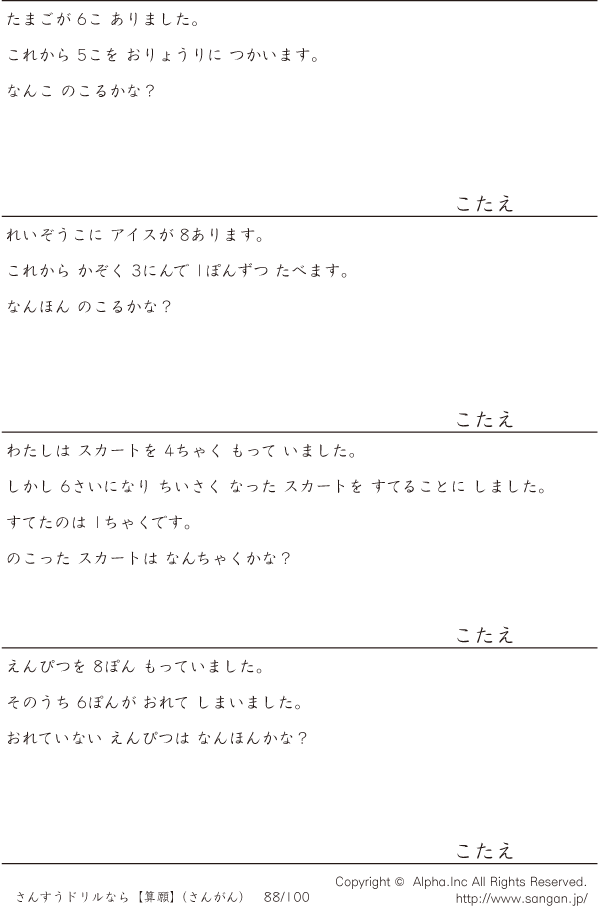 たまごが 6こ ありました。
これから 5こを おりょうりに つかいます。
なんこ のこるかな？
こたえ
れいぞうこに アイスが 8あります。
これから かぞく 3にんで 1ぽんずつ たべます。
なんほん のこるかな？
こたえ
わたしは スカートを 4ちゃく もって いました。
しかし 6さいになり ちいさく なった スカートを すてることに しました。
すてたのは 1ちゃくです。
のこった スカートは なんちゃくかな？
こたえ
えんぴつを 8ぽん もっていました。
そのうち 6ぽんが おれて しまいました。
おれていない えんぴつは なんほんかな？
こたえ
Copyright © Alpha.Inc All Rights Reserved.
さんすうドリルなら【算願】（さんがん） 88/100 http://www.sangan.jp/